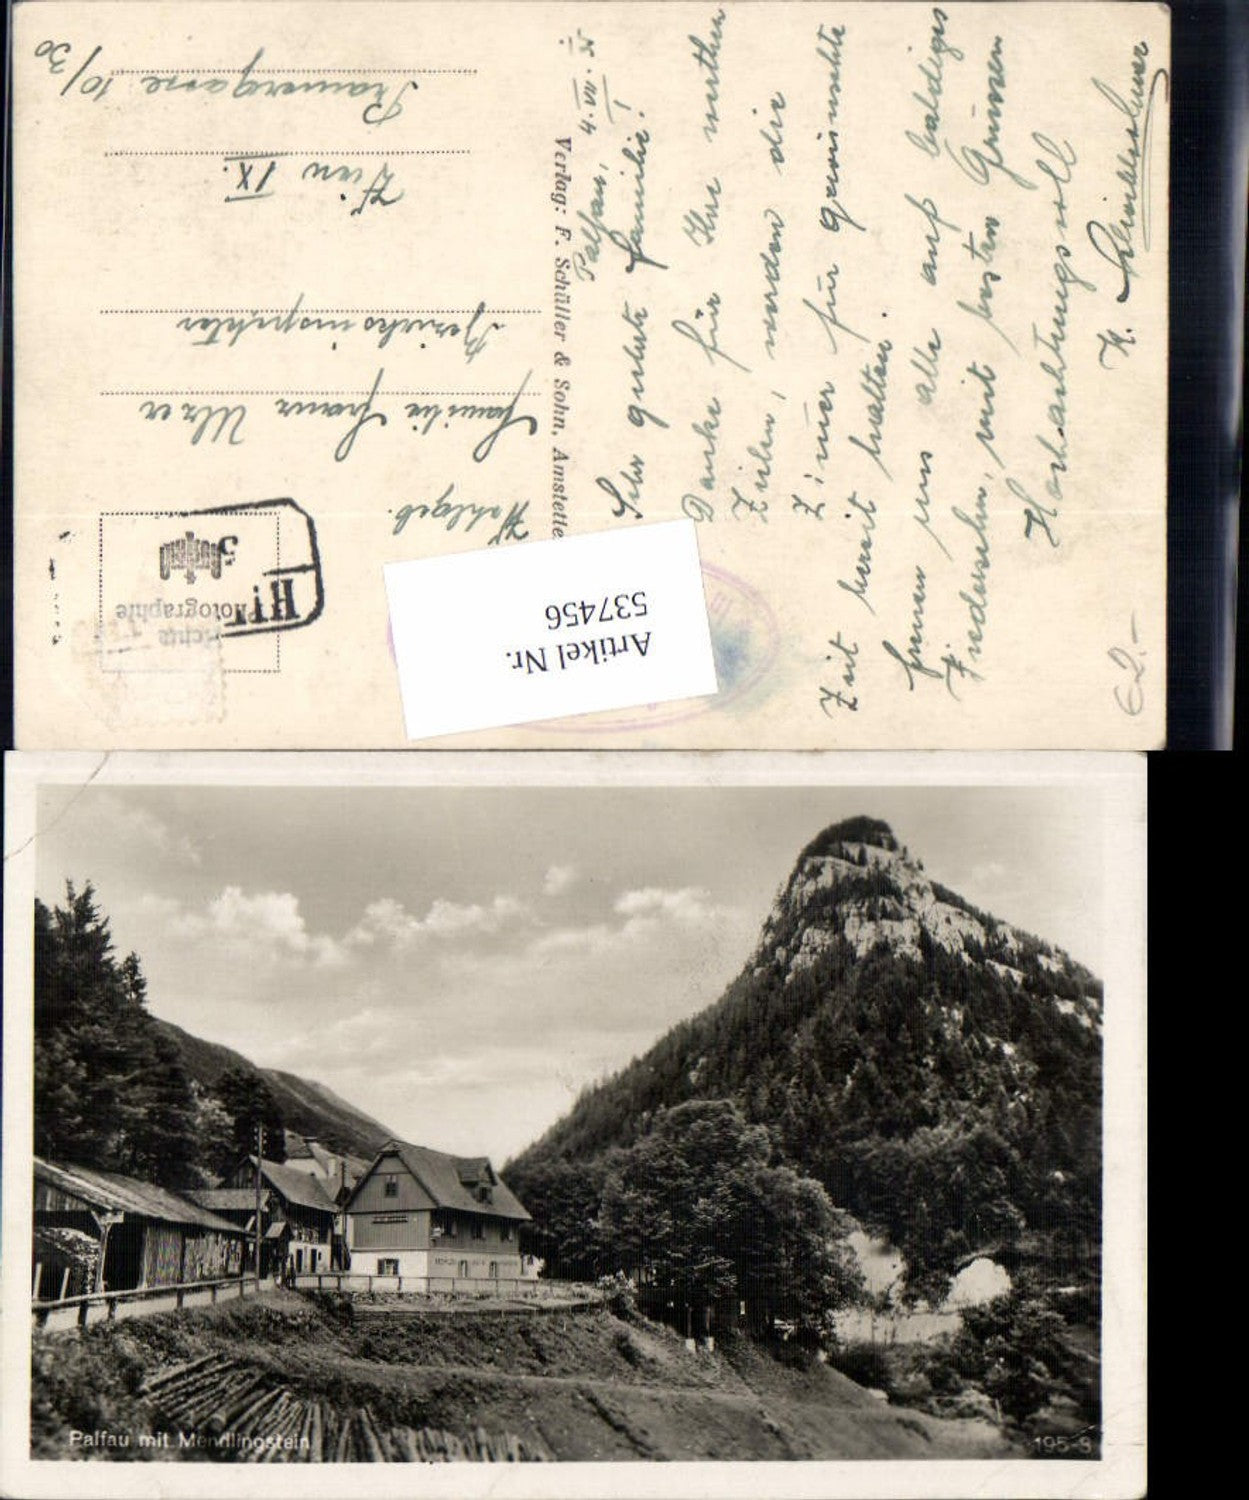 Palfau, 4. VII. 5.
Sehr geehrte Familie!
Danke für Ihre werthen
Zeilen, werden die
Zimer für gewünschte
Zeit bereit halten.
freuen uns alle auf baldiges
Wiedersehen, mit besten Grüssen
Hochachtungsvoll
62.-
Verlag: F. Schüller & Sohn, Amstette
Wohlgeb.
Familie Franz Ulzer
Bezirksinspektor
Wien IX.
Pramergasse 10/30
Echte
Photographie
Artikel Nr.
537456
Palfau mit Mendlingstein
195-9